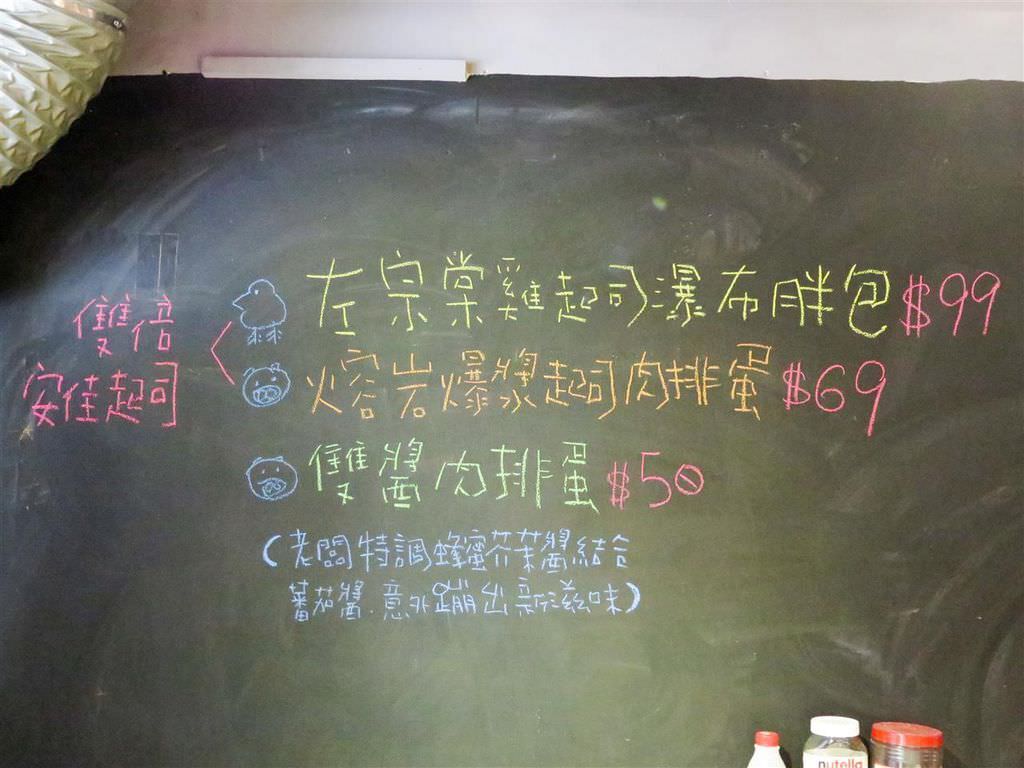 雙倍
安佳起司
左宗棠雞起司瀑布胖包$99
熔岩爆漿起司肉排蛋$69
雙醬肉排蛋$50
(老闆特調蜂蜜芥茉醬結合
蕃茄醬.意外蹦出新滋味)
nutella